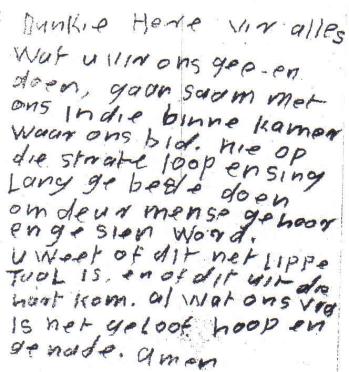 Dunkie Here vir alles
Wat u vir ons gee-en
doen, gaan saam met
ons In die binne kamer
waar ons bid. nie op
die strate loop en sing
Lang ge bede doen
om deur mense gehoor
en ge sien word.
u weet of dit net Lippe
Taal is, en of dit uit die
hart kom. al wat ons vra
Is net geloof hoop en
genade. amen